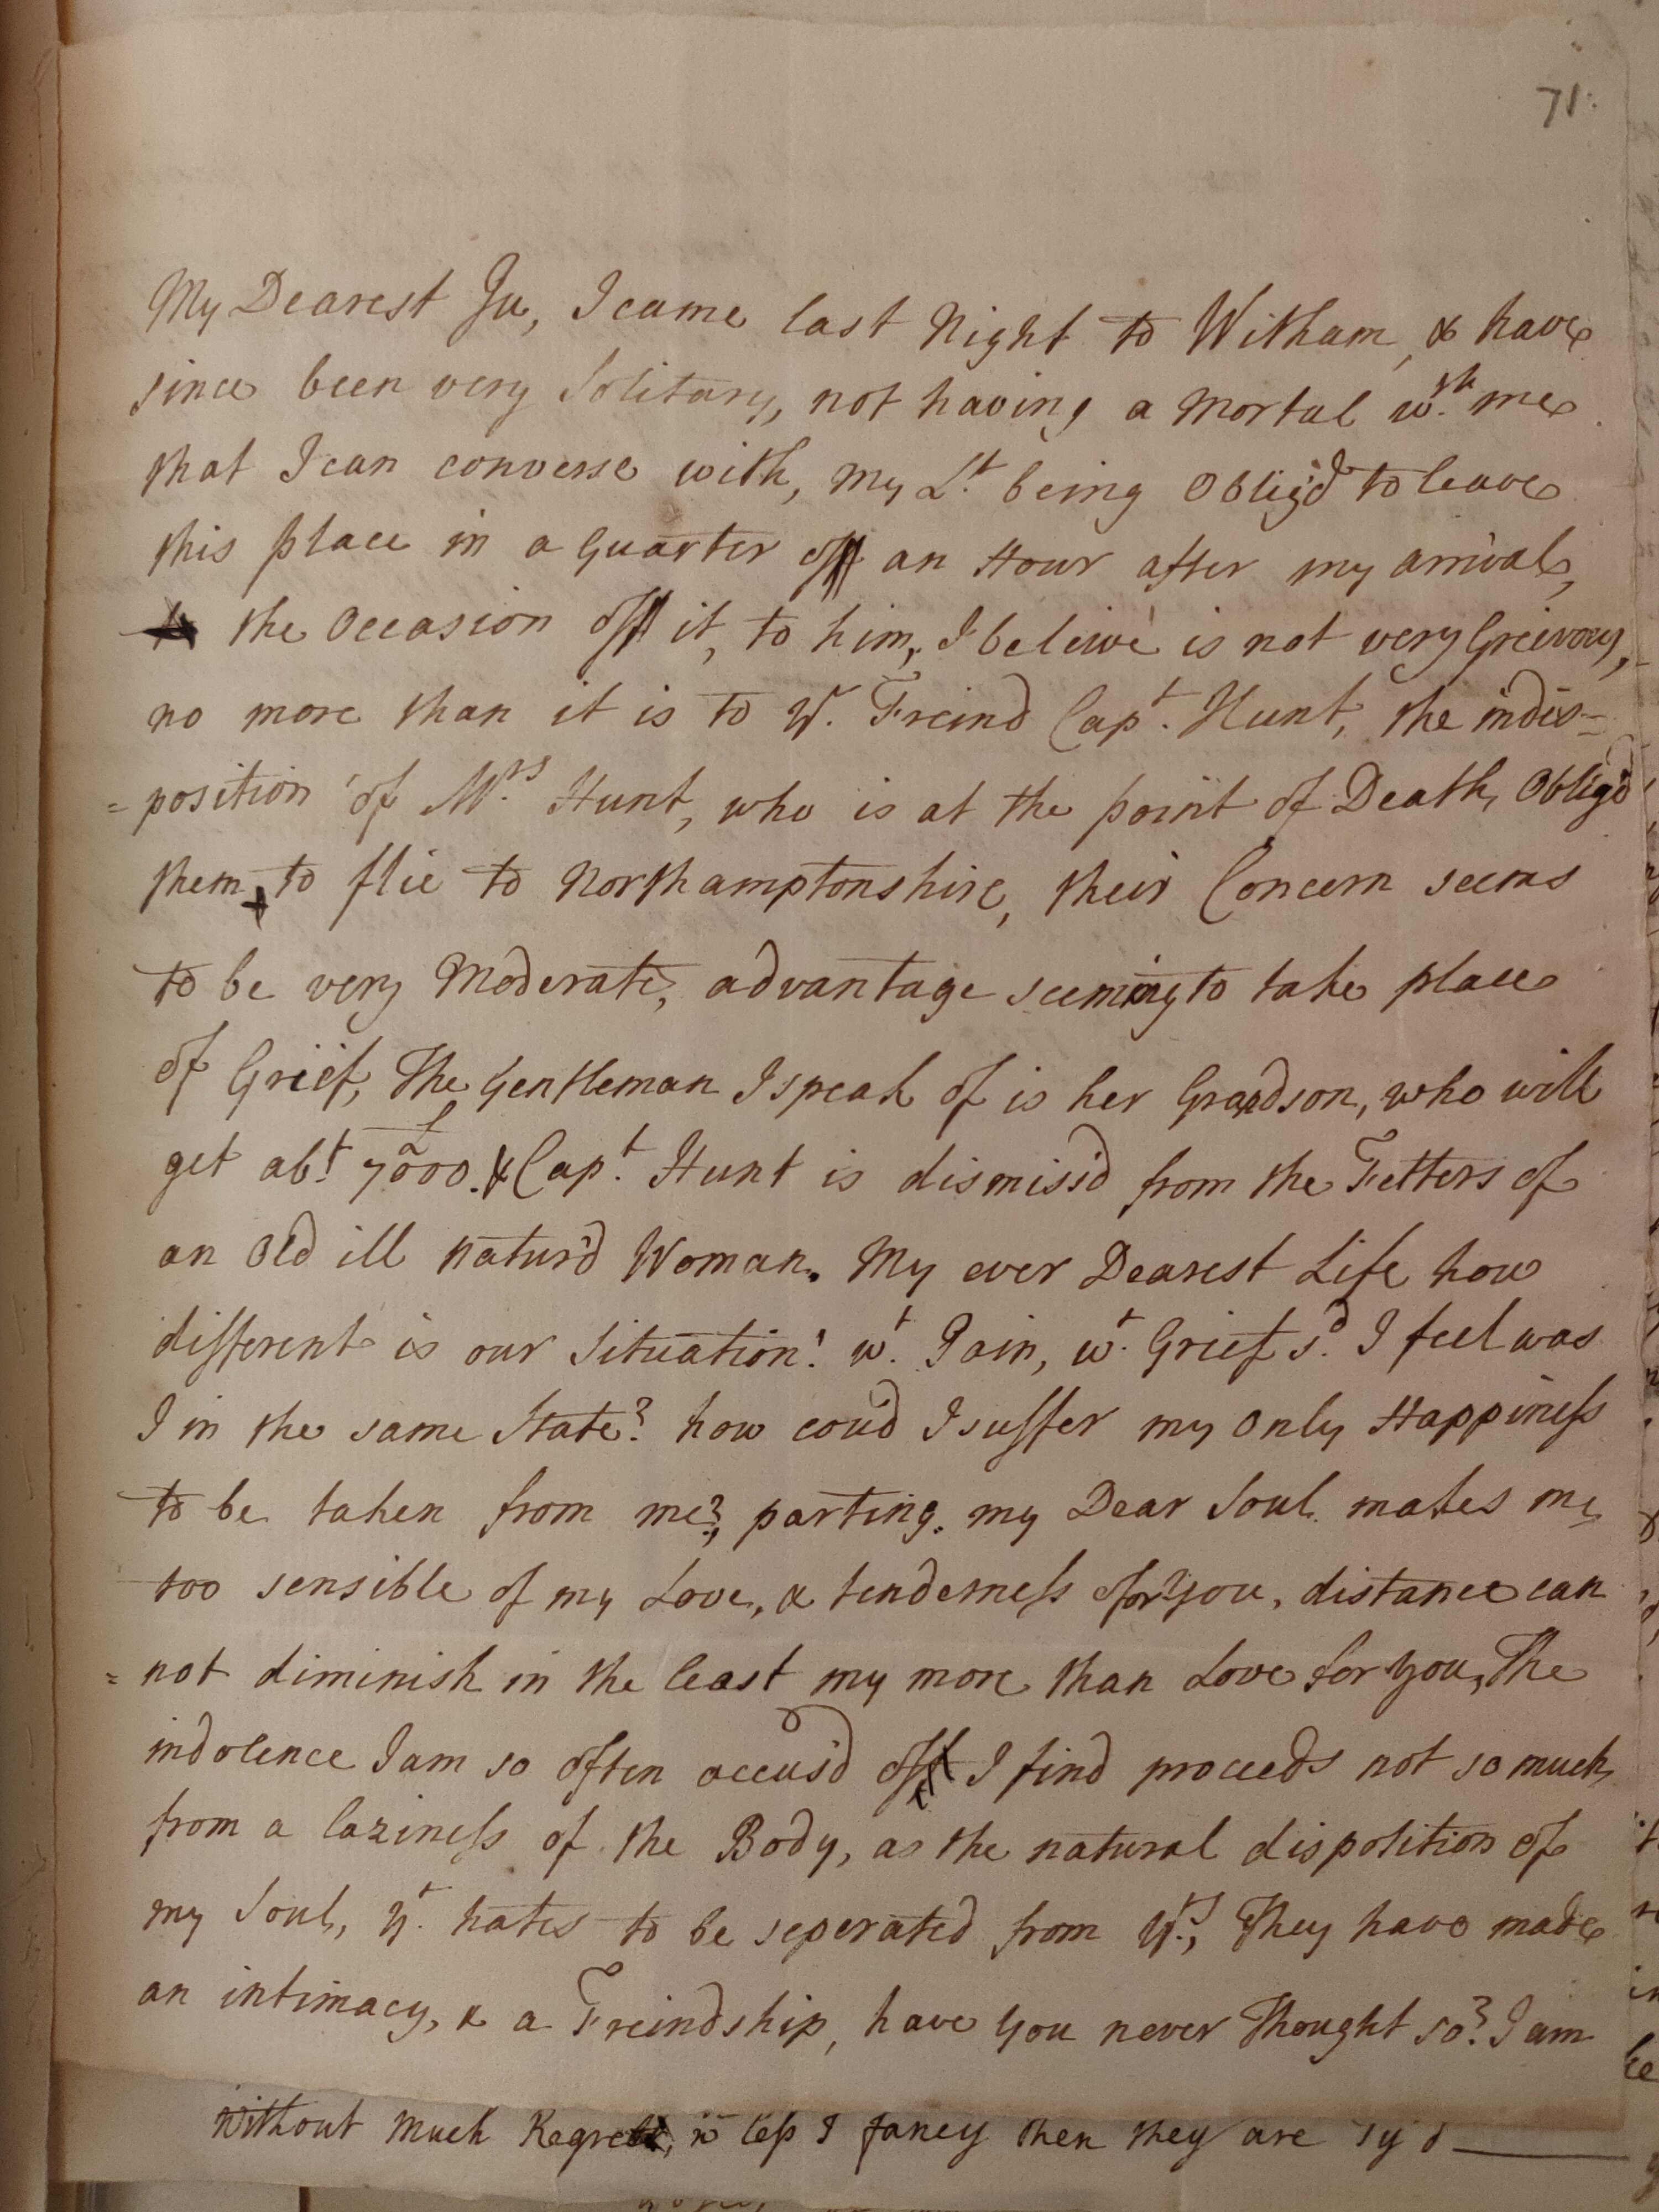 71.
My Dearest Ju, I came last Night to Witham, & have
since been very Solitary, not having a Mortal wth. me
that I can converse with, my Lt. being Oblig'd to leave
this place in a Quarter off an Hour after my arrival,
the Occasion off it, to him, I beleive is not very Greivous,
no more than it is to Yr. Freind Capt. Hunt, the indis-
=position of Mrs. Hunt, who is at the point of Death, Oblig'd
them to flie to Northamptonshire, their Concern seems
to be very Moderate, advantage seeming to take place
of Grief, The Gentleman I speak of is her Grandson, who will
get abt. 7000£. & Capt. Hunt is dismiss'd from the Fetters of
an Old ill natur'd Woman. My ever Dearest Life how
different is our Situation! wt. Pain, wt. Grief sd. I feel was
I in the same State? how cou'd I suffer my Only Happiness
to be taken from me?, parting. my Dear Soul. makes me
too sensible of my Love, & tenderness for you, distance can
=not diminish in the least my more than Love for you, The
indolence I am so often accus'd off I find proceeds not so much
from a laziness of the Body, as the natural disposition of
my Soul, yt. hates to be seperated from Yrs., They have made
an intimacy, & a Freindship, have you never Thought so? I am
Without Much Regrett, less I fancy then they are